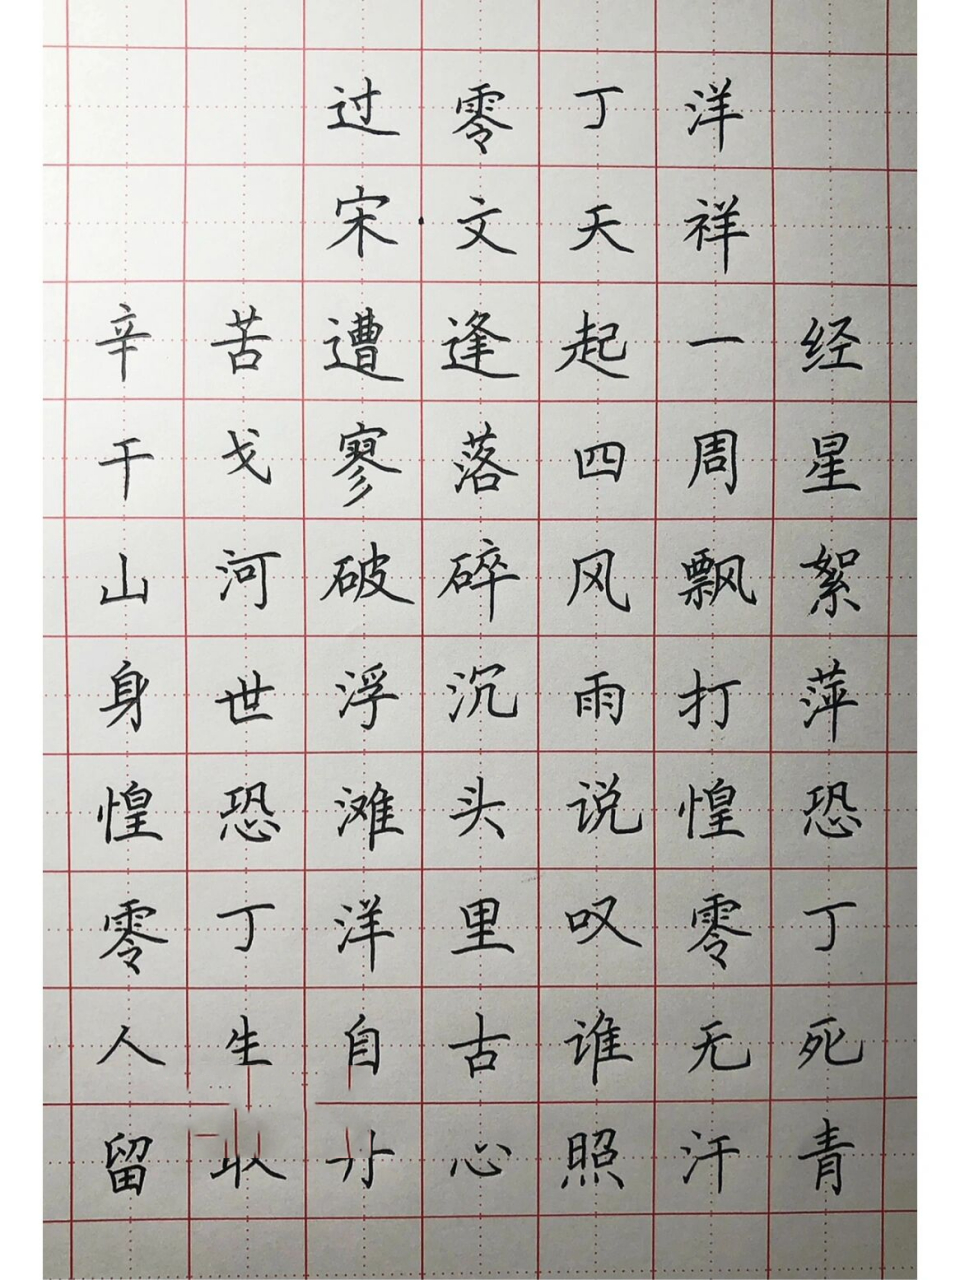 过零丁洋
宋·文天祥
辛苦遭逢起一经
干戈寥落四周星
山河破碎风飘絮
身世浮沉雨打萍
惶恐滩头说惶恐
零丁洋里叹零丁
人生自古谁无死
留心照汗青